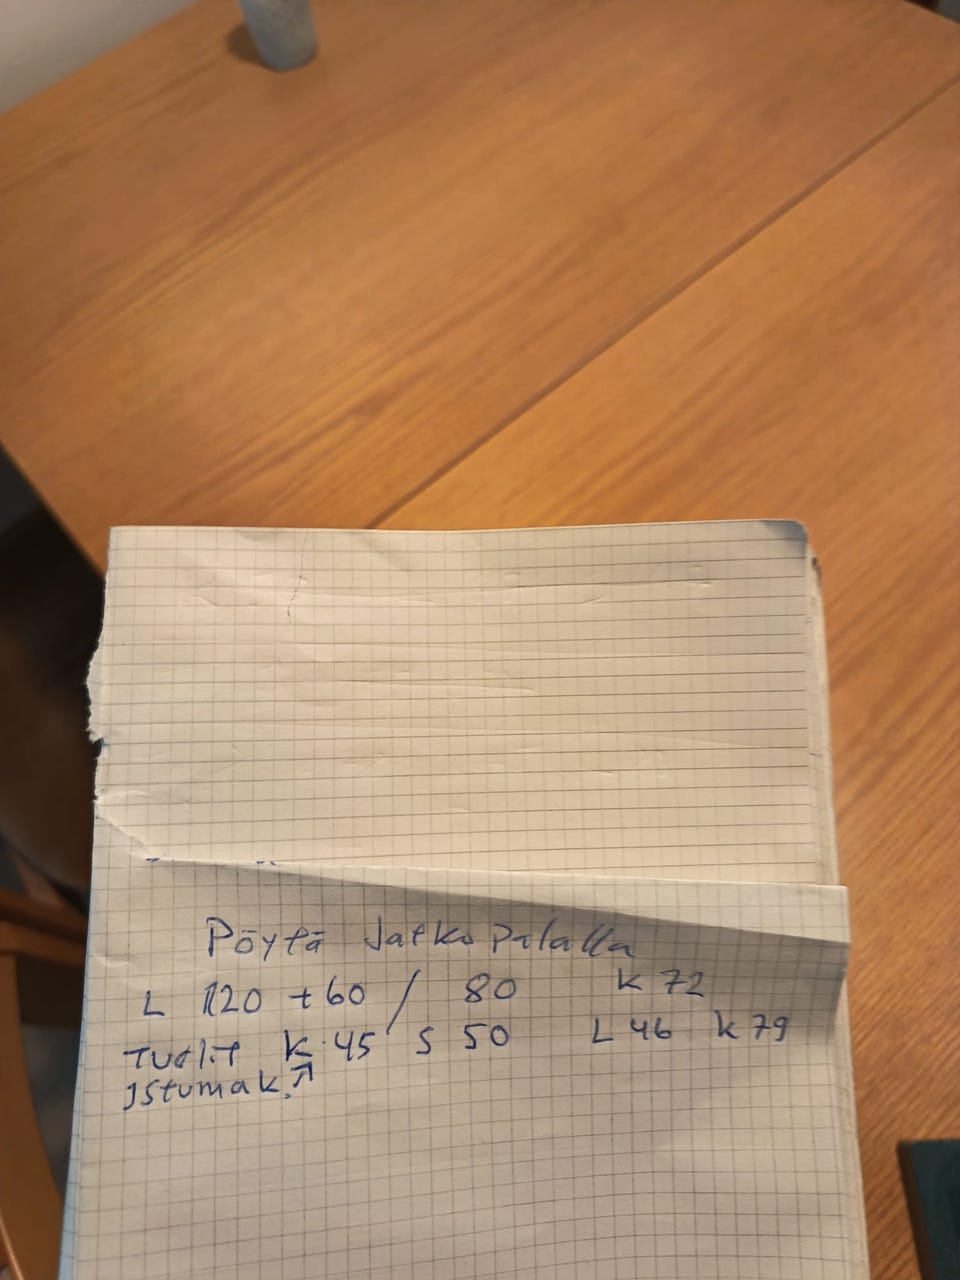 Pöytä Jatko palalla
L 120 + 60 / 80 K 72
Tuolit K 45 S 50 L 46 K 79
Istumak. ↗